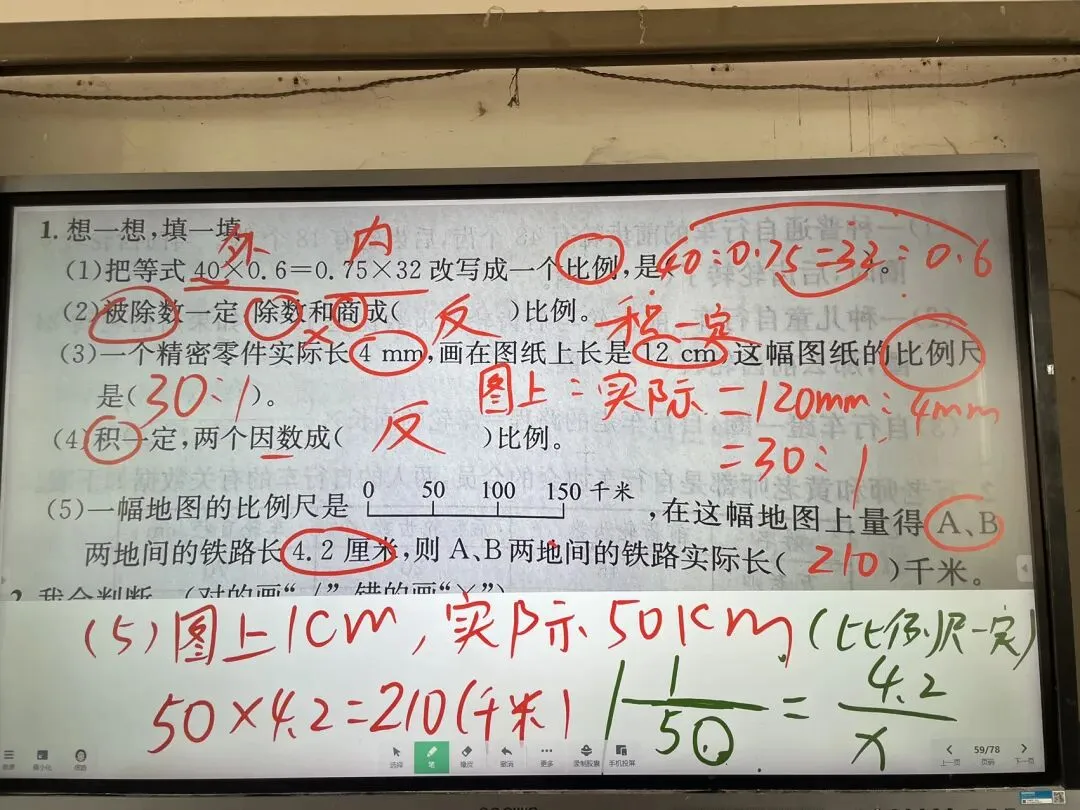 1. 想一想,填一填
外 内
(1)把等式 40×0.6=0.75×32 改写成一个比例,是40:0.75=32:0.6。
(2)被除数一定 除数和商成( 反 )比例。 积一定
×
(3)一个精密零件实际长 4 mm,画在图纸上长是 12 cm 这幅图纸的比例尺
是(30:1)。 图上:实际=120mm:4mm
(4)积一定,两个因数成( 反 )比例。 =30:1
(5)一幅地图的比例尺是 0 50 100 150 千米 ,在这幅地图上量得 A、B
两地间的铁路长 4.2 厘米,则 A、B 两地间的铁路实际长( 210 )千米。
(5)图上1cm,实际50km(比例尺一定)
50×4.2=210(千米) 1/50=4.2/x
选择 笔 撤消 更多 手机投屏 上一页 59/78 页码 下一页